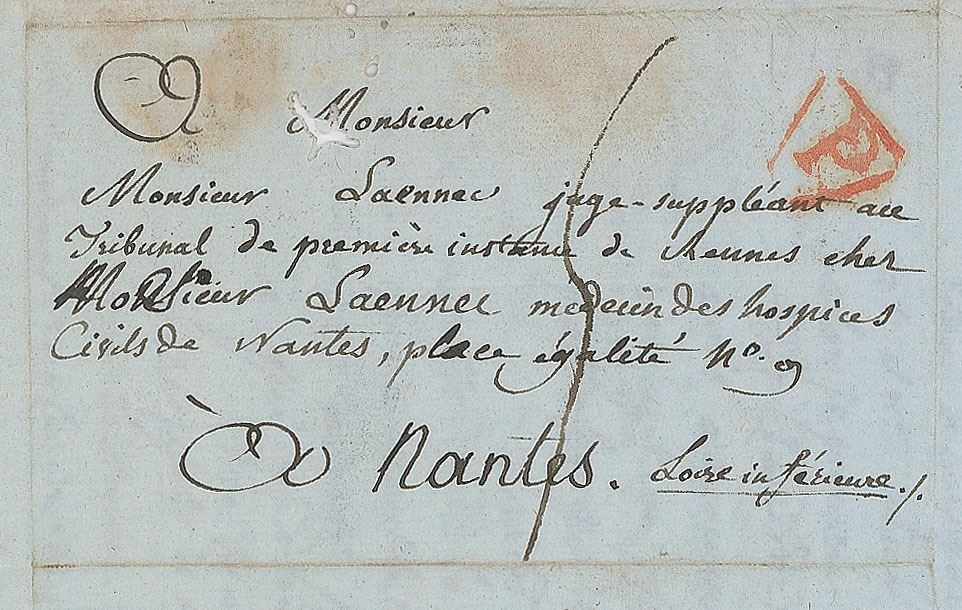 A Monsieur
Monsieur Laennec juge-suppléant au
Tribunal de première instance de Rennes chez
Monsieur Laennec medecin des hospices
Civils de Nantes, place égalité N.º 9
À Nantes. Loire inférieure ./.